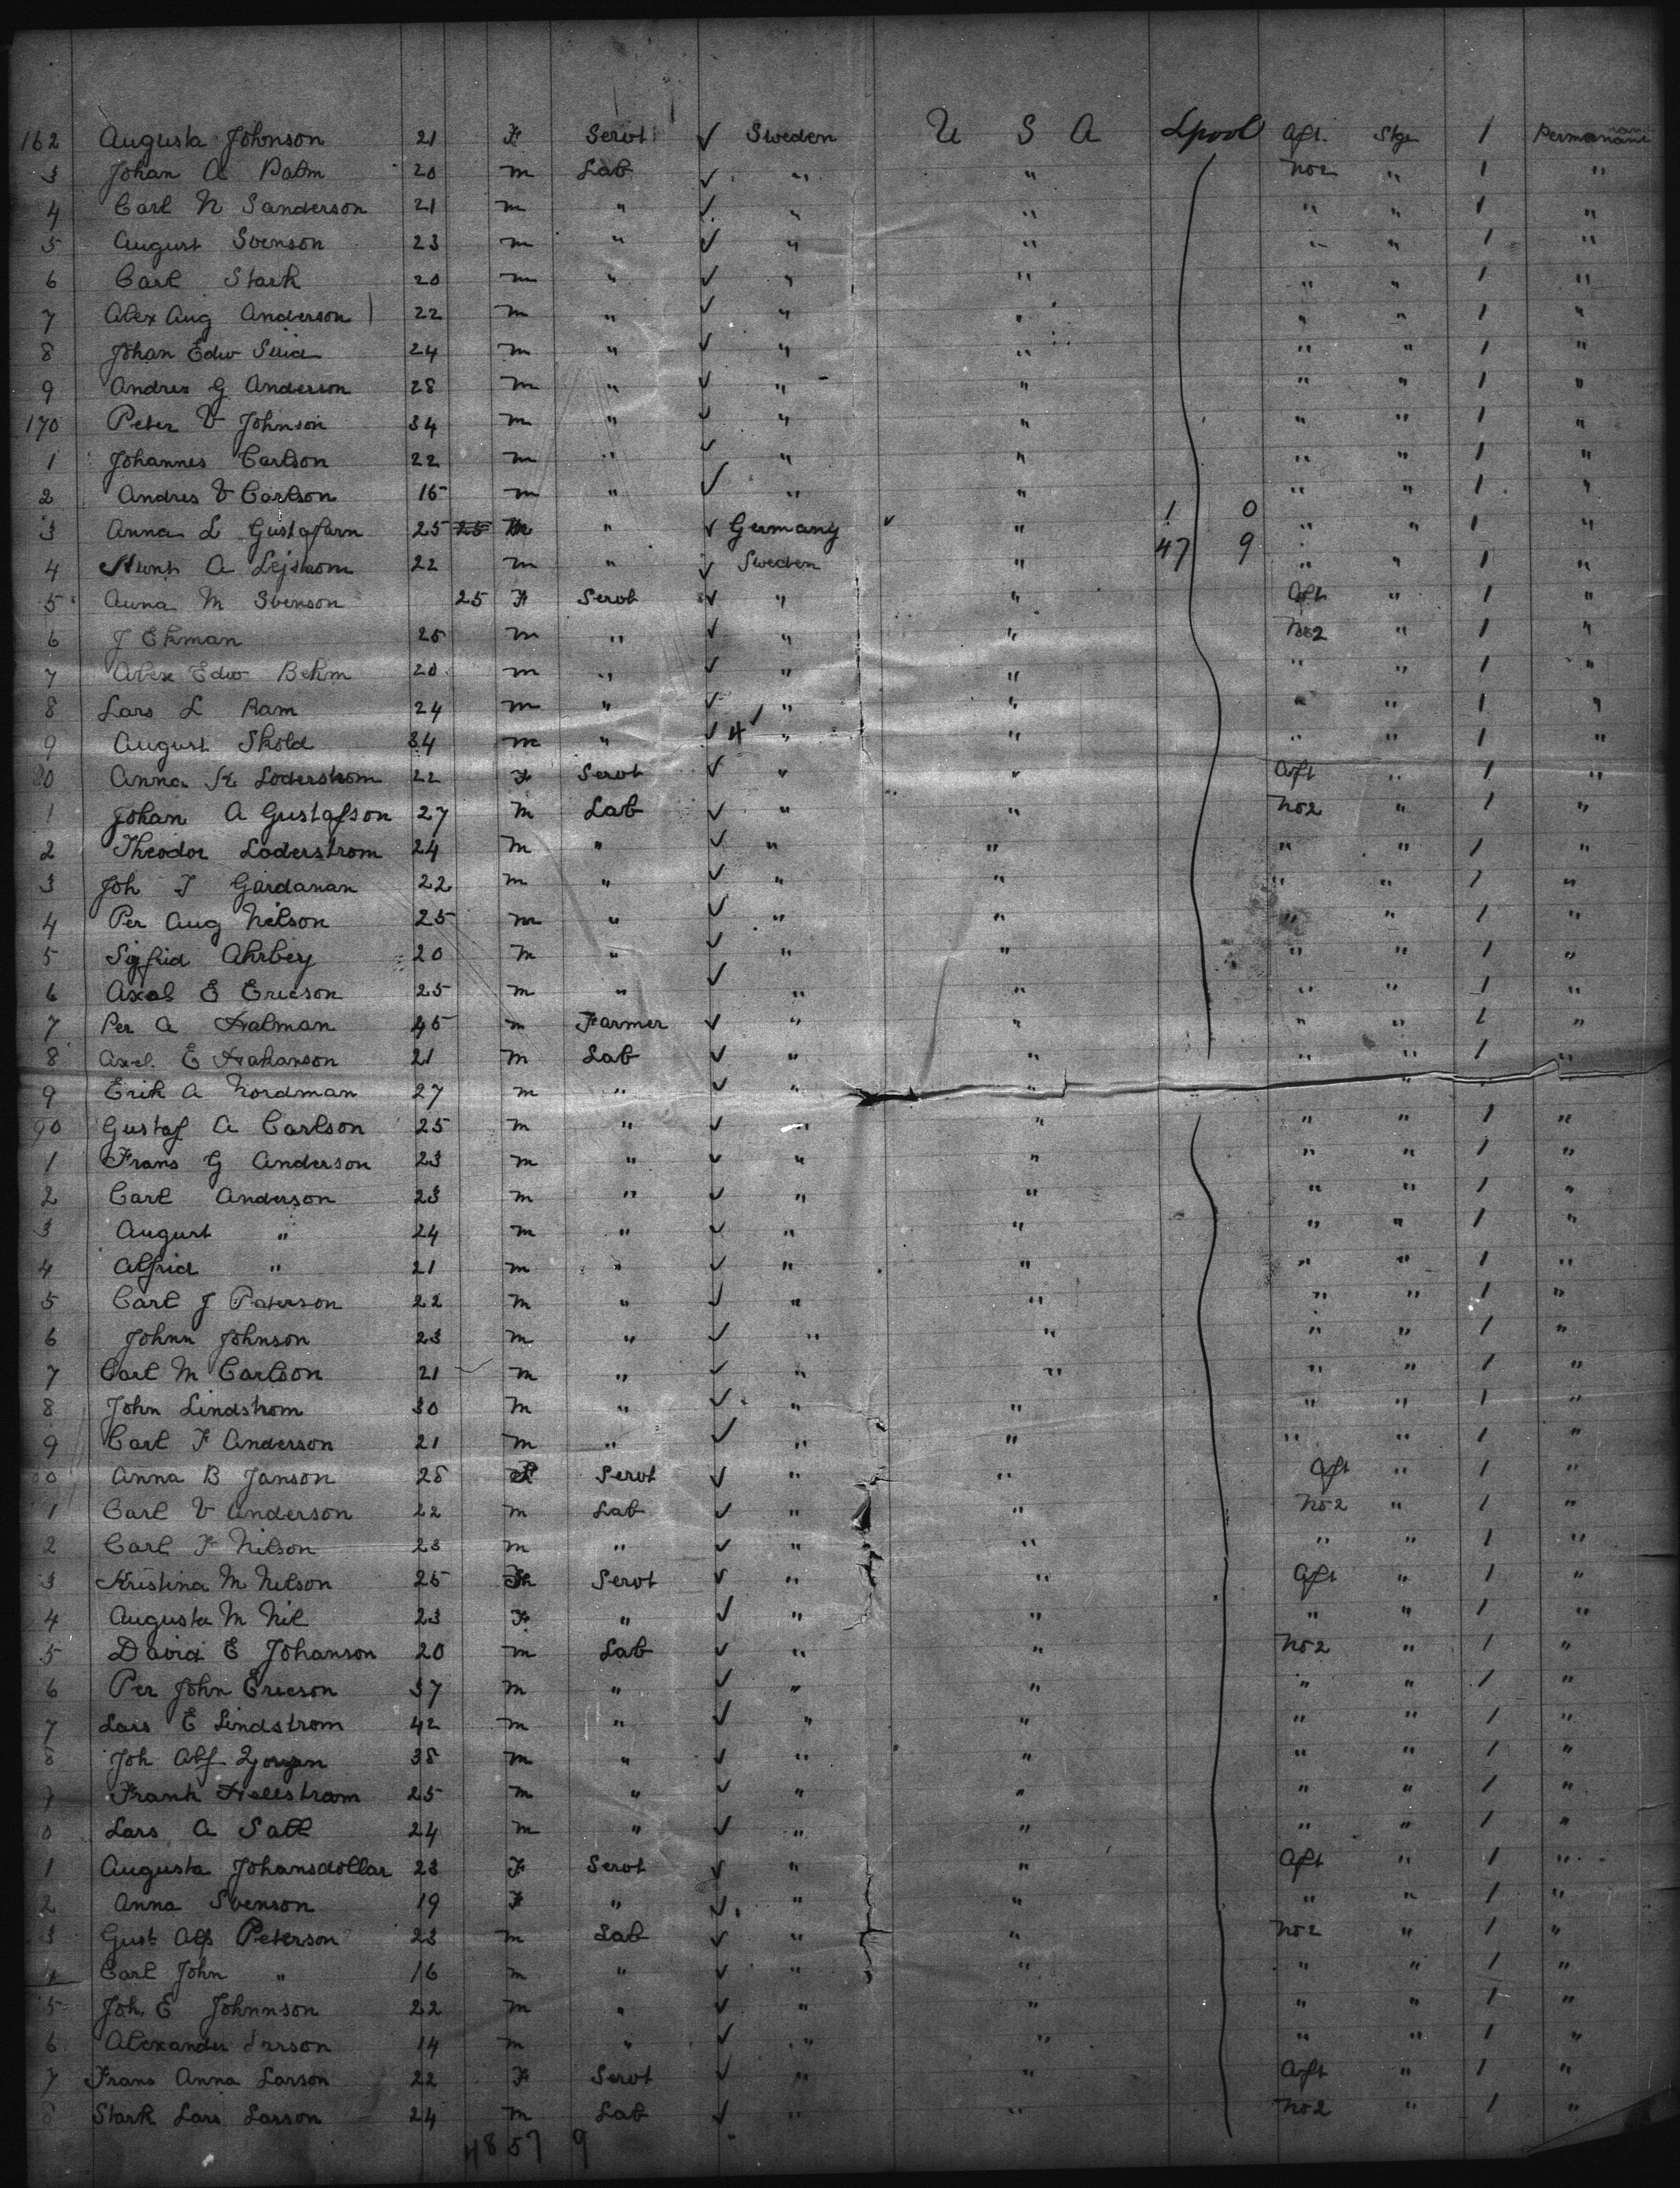 162 Augusta Johnson 21 F Servt ✓ Sweden U S A Lpool Aft. Stge 1 Permanant
3 Johan A Palm 20 m Lab ✓ " " No2 " 1 "
4 Carl N Sanderson 21 m " ✓ " " " " 1 "
5 August Svenson 23 m " ✓ " " " " 1 "
6 Carl Stark 20 m " ✓ " " " " 1 "
7 Alex Aug Anderson 22 m " ✓ " " " " 1 "
8 Johan Edw 24 m " ✓ " " " " 1 "
9 Andrez G Anderson 28 m " ✓ " " " " 1 "
170 Peter V Johnson 34 m " ✓ " " " " 1 "
1 Johannes Carlson 22 m " ✓ " " " " 1 "
2 Andres V Carlson 15 m " ✓ " " " " 1 "
3 Anna L 25 25 " ✓ Germany ✓ " 1 0 " " 1 "
4 A 22 m " ✓ Sweden " 47 9 " " 1 "
5 Anna M Svenson 25 F Servt ✓ " " Aft " 1 "
6 J Ekman 25 m " ✓ " " No2 " 1 "
7 Alex Edw Behm 20 m " ✓ " " " " 1 "
8 Lars L Ram 24 m " ✓ " " " " 1 "
9 August Skold 34 m " ✓ " " " " 1 "
80 Anna K Loderstrom 22 F Servt ✓ " " Aft " 1 "
1 Johan A Gustafson 27 m Lab ✓ " " No2 " 1 "
2 Theodor Loderstrom 24 m " ✓ " " " " 1 "
3 Joh T Gardanan 22 m " ✓ " " " " 1 "
4 Per Aug Nelson 25 m " ✓ " " " " 1 "
5 Sigfrid Ahrberg 20 m " ✓ " " " " 1 "
6 Axel E Ericson 25 m " ✓ " " " " 1 "
7 Per A Halman 45 m Farmer ✓ " " " " 1 "
8 Axel E Hakanson 21 m Lab ✓ " " " " 1 "
9 Erik A Nordman 27 m " ✓ " " "
90 Gustaf A Carlson 25 m " ✓ " " " 1 "
1 Frans G Anderson 23 m " ✓ " " " " 1 "
2 Carl Anderson 23 m " ✓ " " " " 1 "
3 August " 24 m " ✓ " " " " 1 "
4 Alfrid " 21 m " ✓ " " " " 1 "
5 Carl J Paterson 22 m " ✓ " " " " 1 "
6 Johnn Johnson 23 m " ✓ " " " " 1 "
7 Carl M Carlson 21 m " ✓ " " " " 1 "
8 John Lindstrom 30 m " ✓ " " " " 1 "
9 Carl F Anderson 21 m " ✓ " " " " 1 "
00 Anna B Janson 25 F Servt ✓ " " Aft " 1 "
1 Carl V Anderson 22 m Lab ✓ " " No2 " 1 "
2 Carl F Nilson 23 m " ✓ " " " " 1 "
3 Kristina M Nelson 25 F Servt ✓ " " Aft " 1 "
4 Augusta M Nil 23 F " ✓ " " " " 1 "
5 David E Johanson 20 m Lab ✓ " " No2 " 1 "
6 Per John Ericson 37 m " ✓ " " " " 1 "
7 Lars E Lindstrom 42 m " ✓ " " " " 1 "
8 Joh Alf 38 m " ✓ " " " " 1 "
9 Frank Hellstrom 25 m " ✓ " " " " 1 "
0 Lars A Sall 24 m " ✓ " " " " 1 "
1 Augusta Johansdollar 23 F Servt ✓ " " Aft " 1 "
2 Anna Svenson 19 F " ✓ " " " " 1 "
3 Gust Alf Peterson 23 m Lab ✓ " " No2 " 1 "
4 Carl John " 16 m " ✓ " " " " 1 "
5 Joh. E Johnnson 22 m " ✓ " " " " 1 "
6 Alexander 14 m " ✓ " " " " 1 "
7 Frans Anna Larson 22 F Servt ✓ " " Aft " 1 "
8 Stark Lars Larson 24 m Lab ✓ " " No2 " 1 "
48 57 9